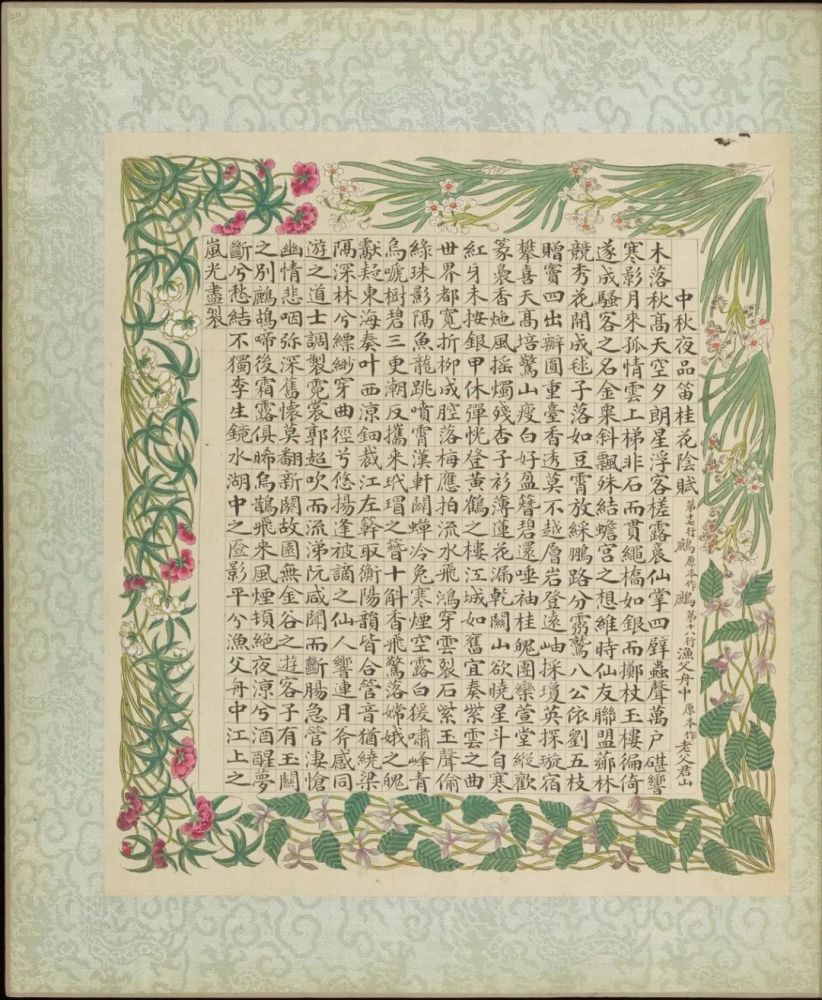 中秋夜品笛桂花陰賦 第十七行鷓原本作鷓第十八行漁父舟中原本作老父君山
木落秋髙天空夕朗星浮客槎露裛仙掌四壁蟲聲萬戸碪響
寒影月來孤情雲上梯非石而貫繩橋如銀而擲杖玉樓徧倚
遂成騷客之名金粟斜飄殊結蟾宮之想維時仙友聯盟薌林
競秀花開成毬子落如豆霄放綵鵬路分霧鷲八公依劉五枝
贈竇四出辦圓重臺香透莫不越層岩登逺岫採瓊英探璇宿
攀喜天髙培驚山瘦白好盈簪碧還唾袖桂魄團欒萱堂縱歡
篆裊香灺風摇燭殘杏子衫薄蓮花漏乾闗山欲曉星斗自寒
紅牙未按銀甲休彈恍登黄鶴之樓江城如舊宜奏紫雲之曲
世界都寛折柳成腔落梅應拍流水飛鴻穿雲裂石紫玉聲偷
緑珠影隔魚龍跳噴霄漢軒闢蟬冷免寒煙空露白猨嘯峰青
烏嗁樹碧三更潮反攜来玳瑁之簪十斛香飛驚落嫦娥之魄
獻超東海奏叶西涼鈿裁江左簳取衡陽韻皆合管音猶繞梁
隔深林兮縹緲穿曲徑兮悠揚逢被謫之仙人響連月斧感同
遊之道士調製霓裳郭超吹而流涕阮咸聞而斷腸急管淒愴
幽情悲咽弥深舊懷莫翻新闋故園無金谷之遊客子有玉闗
之别鷓鴣啼後霜露俱晞烏鵲飛来風煙頓絶夜涼兮酒醒夢
斷兮愁結不獨李生鏡水湖中之崄影平兮漁父舟中江上之
嵐光盡裂